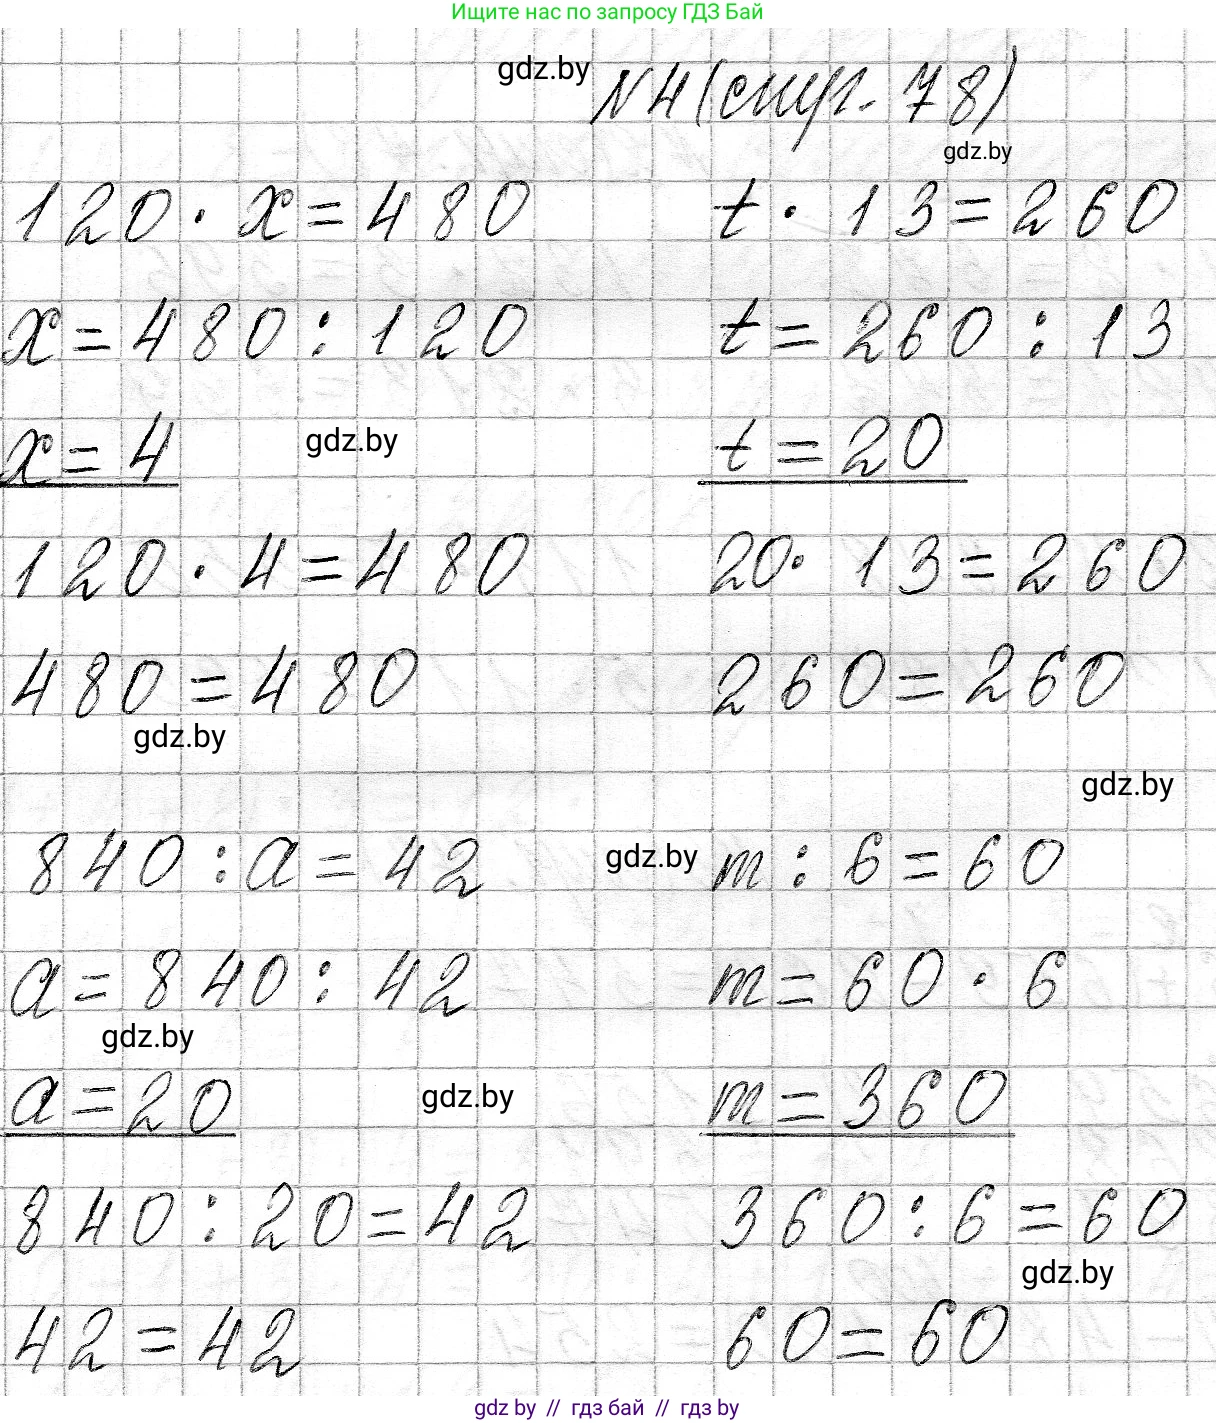 Ищите нас по запросу ГДЗ Бай
gdz.by
N4 (стр. 78)
gdz.by
120 · x = 480
x = 480 : 120
x = 4
gdz.by
120 · 4 = 480
480 = 480
gdz.by
t · 13 = 260
t = 260 : 13
t = 20
20 · 13 = 260
260 = 260
gdz.by
840 : a = 42
a = 840 : 42
gdz.by
a = 20
gdz.by
840 : 20 = 42
42 = 42
gdz.by
m : 6 = 60
m = 60 · 6
m = 360
360 : 6 = 60
gdz.by
60 = 60
gdz by // гдз бай // гдз by